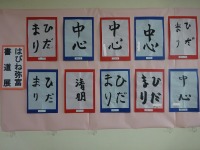 はぴね弥富
書道展
ひだ
まり
中心
ひだ
まり
中心
ひだ
まり
中心
ひだ
まり
ひだ
まり
清明
ひだ
まり